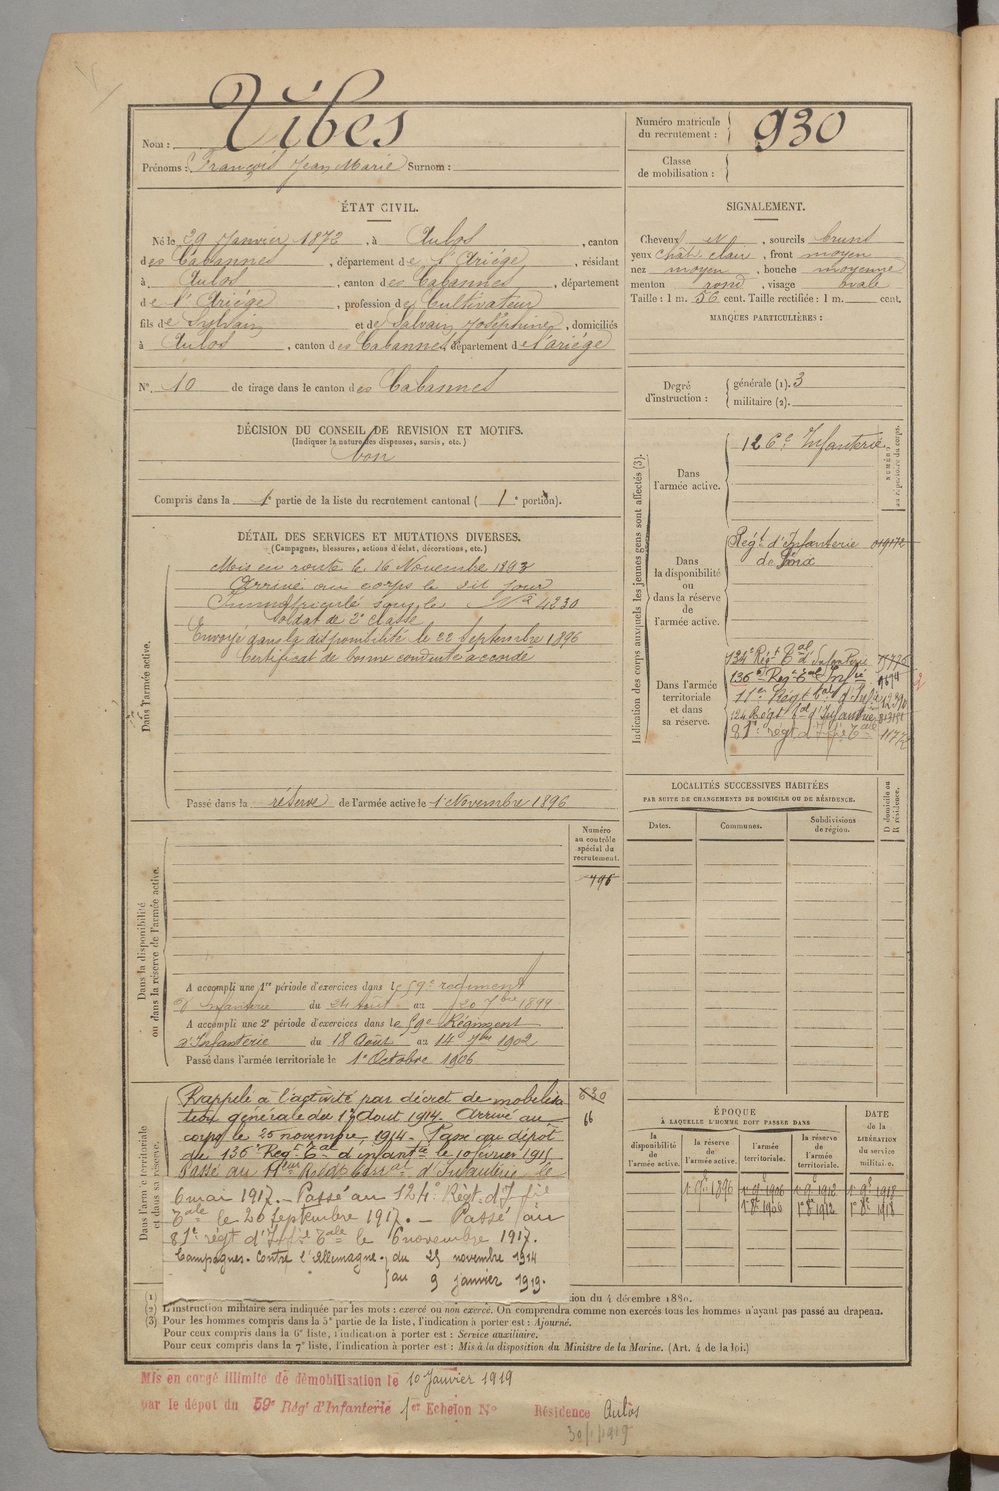 Nom : Tibes
Prénoms : François Jean Marie Surnom :
Numéro matricule du recrutement : 930
Classe de mobilisation :
ÉTAT CIVIL.
Né le 29 Janvier 1872, à Aulos, canton
des Cabannes, département de l'Ariége, résidant
à Aulos, canton des Cabannes, département
de l'Ariége, profession de Cultivateur
fils de Sylvain et de Salvain Joséphine, domiciliés
à Aulos, canton des Cabannes, département de l'ariége
N° 10 de tirage dans le canton des Cabannes
SIGNALEMENT.
Cheveux et, sourcils bruns
yeux chât. clair, front moyen
nez moyen, bouche moyenne
menton rond, visage ovale
Taille : 1 m. 56 cent. Taille rectifiée : 1 m. cent.
MARQUES PARTICULIÈRES :
Degré d'instruction : générale (1). 3
militaire (2).
DÉCISION DU CONSEIL DE REVISION ET MOTIFS.
(Indiquer la nature des dispenses, sursis, etc.)
bon
Compris dans la 1e partie de la liste du recrutement cantonal ( 1e portion).
DÉTAIL DES SERVICES ET MUTATIONS DIVERSES.
(Campagnes, blessures, actions d'éclat, décorations, etc.)
Dans l'armée active.
Mis en route le 16 Novembre 1893
Arrivé au corps le dit jour
Immatriculé sous le N° 4230
Soldat de 2e classe
Envoyé dans la disponibilité le 22 Septembre 1896
Certificat de bonne conduite accordé
Passé dans la réserve de l'armée active le 1e Novembre 1896
Indication des corps auxquels les jeunes gens sont affectés (3).
NUMÉRO
Dans l'armée active.
126e Infanterie
Dans la disponibilité ou dans la réserve de l'armée active.
Régt d'Infanterie
de Foix
Dans l'armée territoriale et dans sa réserve.
134e Régt Tal d'Infanterie
136e Régt Tal Infie
11er Régt d'Infie
124 Régt Tal d'Infanterie
81e régt d'Ifie Tale 11772
LOCALITÉS SUCCESSIVES HABITÉES
PAR SUITE DE CHANGEMENTS DE DOMICILE OU DE RÉSIDENCE.
Dates. Communes. Subdivisions de région.
D domicile ou R résidence.
Dans la disponibilité ou dans la réserve de l'armée active.
Numéro au contrôle spécial du recrutement.
796
A accompli une 1re période d'exercices dans le 59e régiment
d'Infanterie du 24 Août au 20 7bre 1899
A accompli une 2e période d'exercices dans le 59e Régiment
d'Infanterie du 18 Août au 14 7bre 1902
Passé dans l'armée territoriale le 1e Octobre 1906
Dans l'armée territoriale et dans sa réserve.
Rappelé à l'activité par décret de mobilisa
tion générale du 1er Aout 1914. Arrivé au
corps le 25 novembre 1914 - Passé au dépôt
du 136e Régt Tal d'infantie le 10 février 1915
Passé au 11eme Régt d'Infanterie le
6 mai 1917. - Passé au 124e Régt d'Ifie
Tale le 20 septembre 1917. - Passé au
81e régt d'Ifie Tale le 6 novembre 1917.
Campagnes. Contre l'Allemagne. du 25 novembre 1914
au 9 janvier 1919.
630
66
ÉPOQUE
À LAQUELLE L'HOMME DOIT PASSER DANS
la disponibilité de l'armée active. la réserve de l'armée active. l'armée territoriale. la réserve de l'armée territoriale.
DATE de la LIBÉRATION du service militaire.
1e 9e 1896 1e 9e 1906 1e 9e 1912 1e 9e 1918
1e 8e 1906 1e 8e 1912 1e 8e 1918
(1) ion du 4 décembre 1889.
(2) L'instruction militaire sera indiquée par les mots : exercé ou non exercé. On comprendra comme non exercés tous les hommes n'ayant pas passé au drapeau.
(3) Pour les hommes compris dans la 5e partie de la liste, l'indication à porter est : Ajourné.
Pour ceux compris dans la 6e liste, l'indication à porter est : Service auxiliaire.
Pour ceux compris dans la 7e liste, l'indication à porter est : Mis à la disposition du Ministre de la Marine. (Art. 4 de la loi.)
Mis en congé illimité de démobilisation le 10 Janvier 1919
par le dépot du 59e Régt d'Infanterie 1er Echelon No Résidence Aulos
30/1/1919